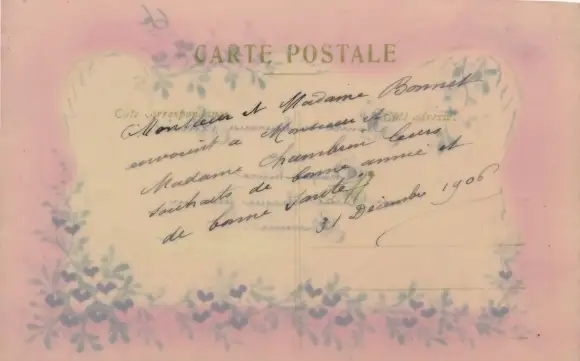 CARTE POSTALE
Côté correspondance
Côté adresse
Monsieur et Madame Bonnet
envoient à Monsieur et
Madame Chambrin leurs
souhaits de bonne année et
de bonne santé
31 Décembre 1906